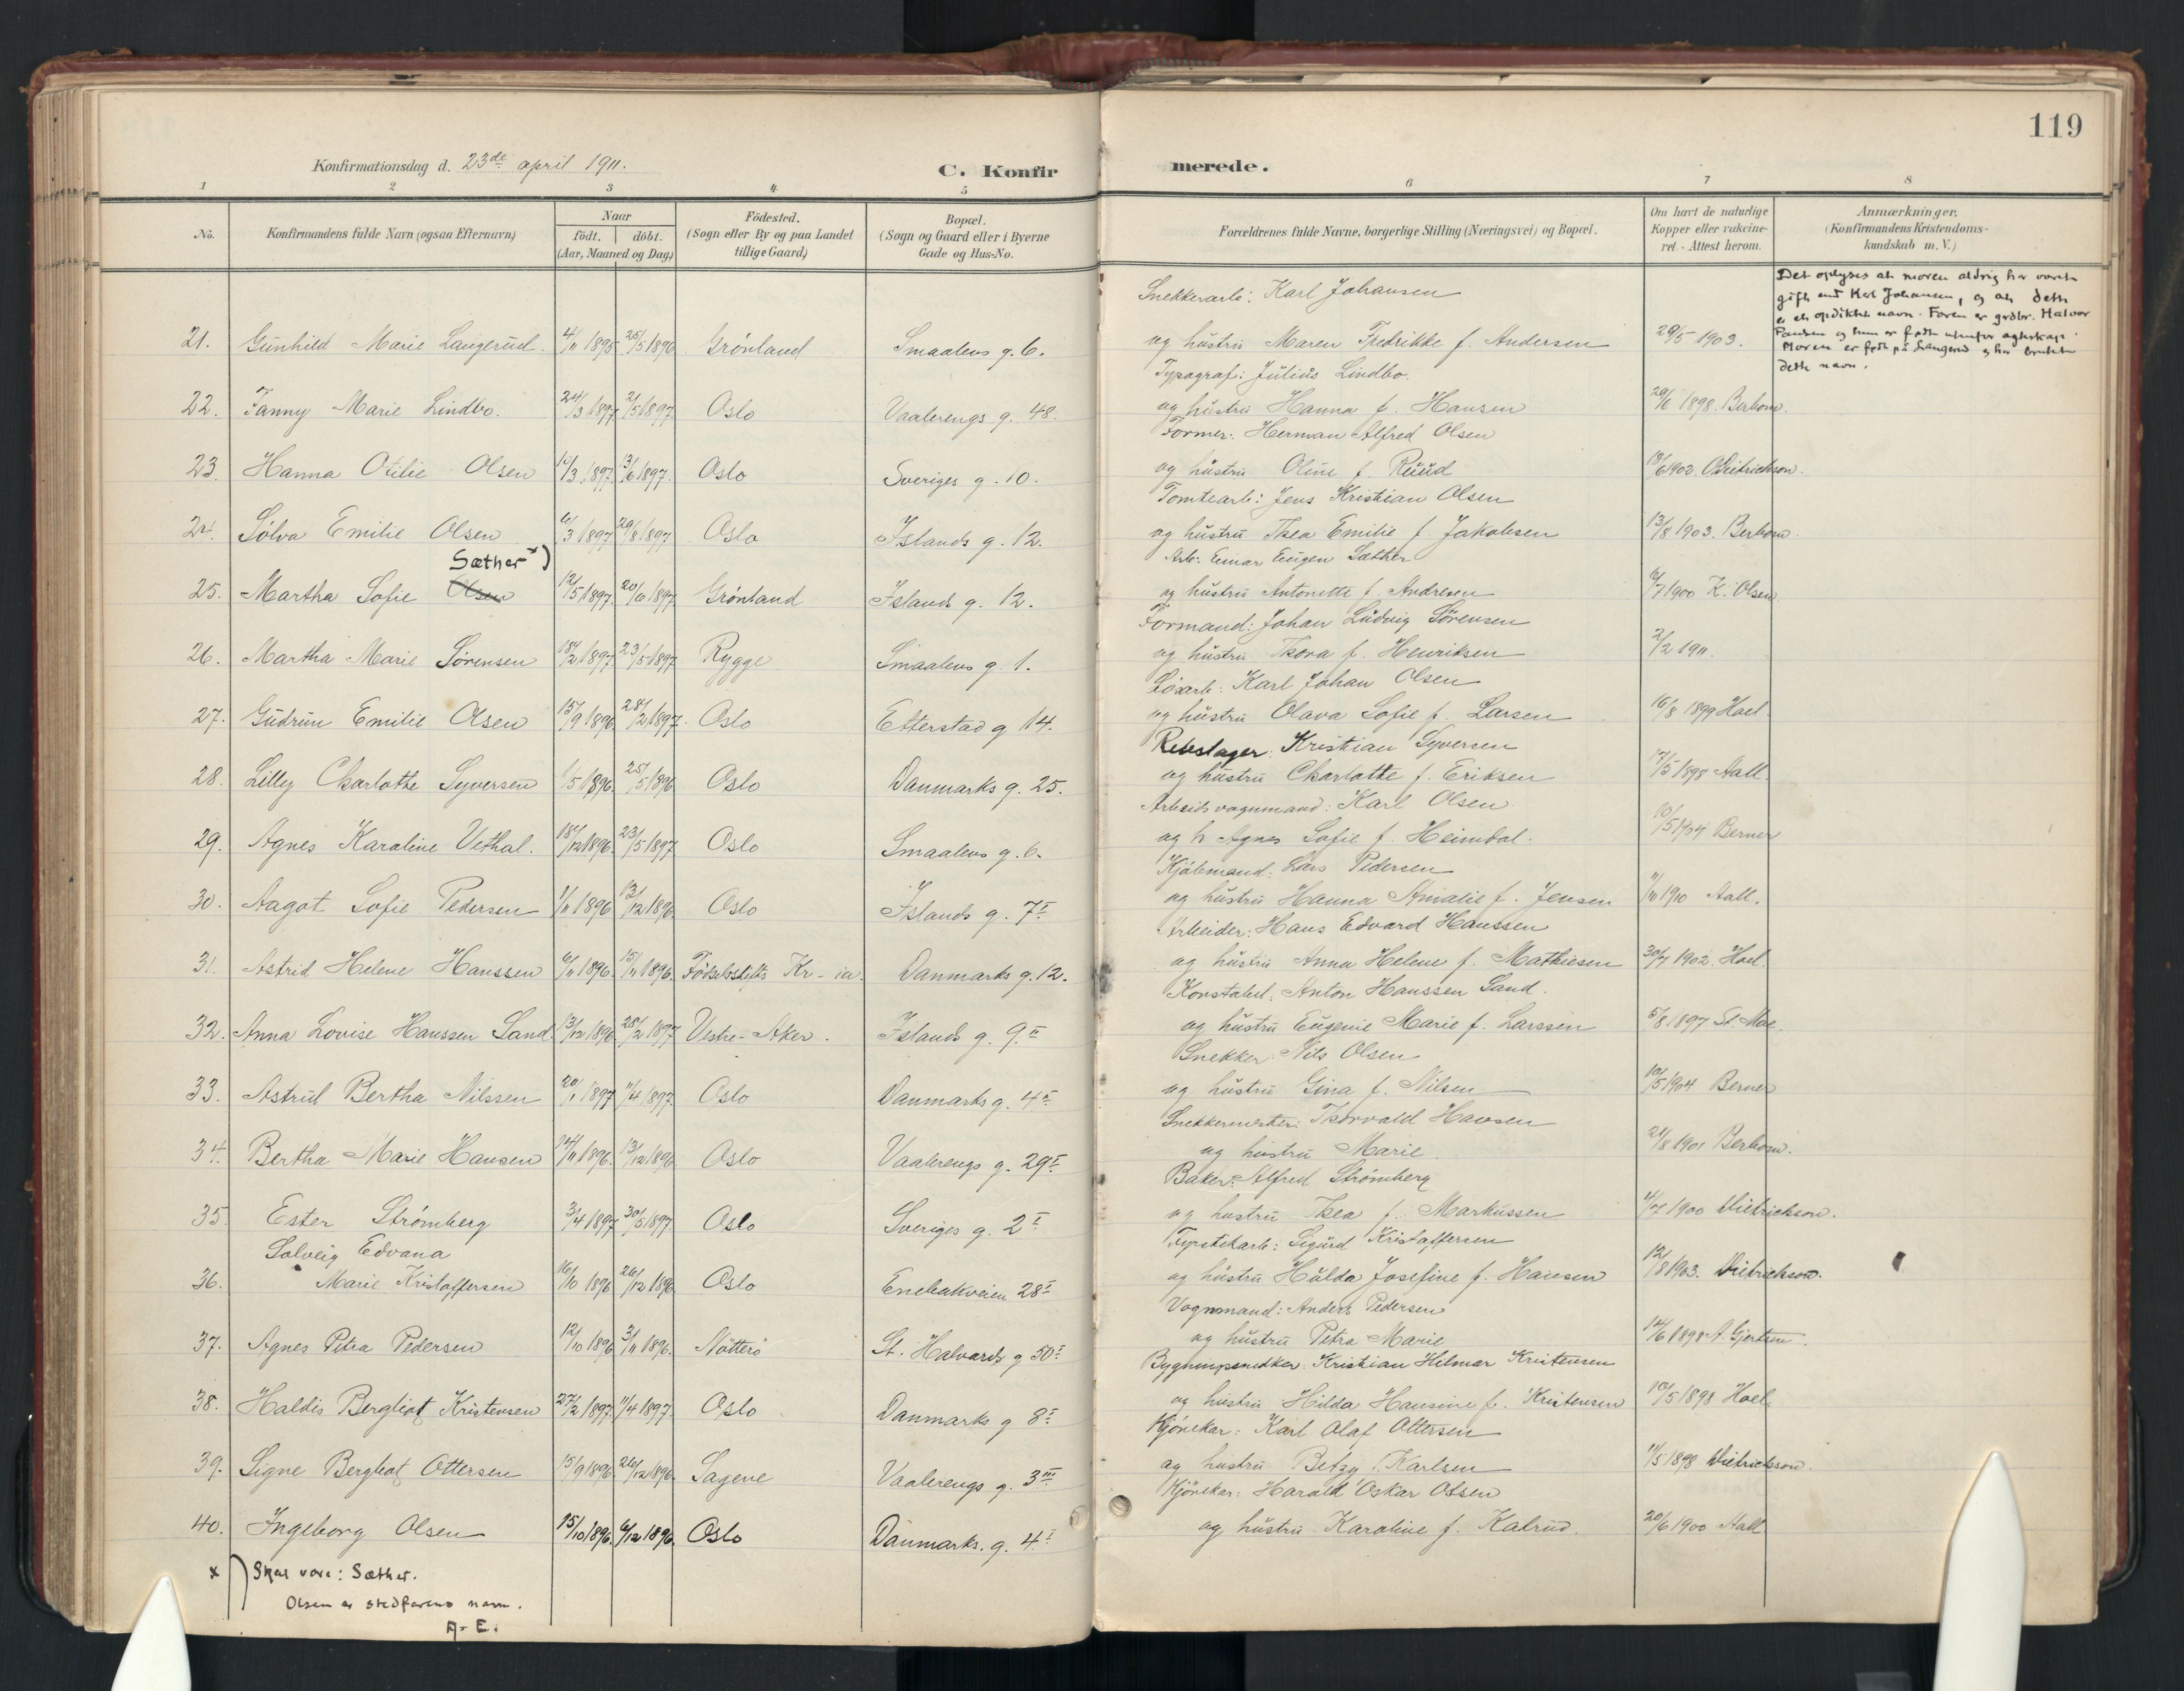 119
Konfirmationsdag d. 23de april 1911.
C. Konfirmerede.
1 2 3 4 5 6 7 8
No.
Konfirmandens fulde Navn (ogsaa Efternavn)
Naar
födt. döbt.
(Aar, Maaned og Dag.)
Födested.
(Sogn eller By og paa Landet
tillige Gaard)
Bopæl.
(Sogn og Gaard eller i Byerne
Gade og Hus-No.
Forældrenes fulde Navne, borgerlige Stilling (Næringsvei) og Bopæl.
Om havt de naturlige
Kopper eller vakcine-
ret. - Attest herom.
Anmærkninger.
(Konfirmandens Kristendoms-
kundskab m. V.)
Snekkerarb: Karl Johansen
21. Gunhild Marie Langerud. 4/11 1895 25/5 1896 Grönland Smaalens g. 6. og hustru Maren Fredrikke f. Andersen 29/5 1903.
Det oplyses at moren aldrig har været
gift med Karl Johansen, og at dette
er et opdiktet navn. Faren er grdbr. Halvor
Paulsen og hun er født utenfor egteskap.
Moren er født på Langerud og har brukt
dette navn.
Typograf: Julius Lindbo.
22. Fanny Marie Lindbo. 24/3 1897 2/5 1897 Oslo Vaalerengs g. 48. og hustru Hanna f. Hansen 29/6 1898. Berbom.
Former: Herman Alfred Olsen
23. Hanna Otilie Olsen 14/3 1897 13/6 1897. Oslo Sveriges g. 10. og hustru Oline f. Ruud 13/6 1902. Dietrichson.
Tomtearb: Jens Kristian Olsen
24. Sölva Emilie Olsen 6/3 1897 29/8 1897 Oslo Islands g. 12. og hustru Thea Emilie f. Jakobsen 13/8 1903. Berbom.
Sæther x)
Arb: Einar Eugen Sæther
25. Martha Sofie Olsen 12/5 1897 20/6 1897 Grönland Islands g. 12. og hustru Antonette f. Andresen 6/7 1900 K. Olsen
Formand: Johan Ludvig Sörensen
26. Martha Marie Sörensen 18/2 1897 23/5 1897 Rygge Smaalens g. 1. og hustru Thora f. Henriksen 2/2 1911.
Lösarb: Karl Johan Olsen
27. Gudrun Emilie Olsen 15/9 1896 28/2 1897. Oslo Etterstad g 14. og hustru Olava Sofie f. Larsen 16/8 1899 Hoel.
Rebslager: Kristian Syversen
28. Lilly Charlotte Syversen 1/5 1896 25/5 1896 Oslo Danmarks g. 25. og hustru Charlotte f. Eriksen 17/5 1898 Aall.
Arbeidsvognmand: Karl Olsen
29. Agnes Karoline Vethal. 18/12 1896. 23/5 1897 Oslo Smaalens g. 6. og h. Agnes Sofie f. Heimdal. 10/5 1904 Berner
Kjöbmand: Lars Pedersen
30. Aagot Sofie Pedersen 1/11 1896 13/12 1896. Oslo Islands g. 7 I og hustru Hanna Amalie f. Jensen 1/11 1910 Aall.
Arbeider: Hans Edvard Hanssen
31. Astrid Helene Hanssen 6/11 1896. 15/11 1896. Födselsstift. Kr-ia. Danmarks g. 12. og hustru Anna Helene f. Mathiesen 30/7 1902. Hoel.
Konstabel: Anton Hanssen Sand.
32. Anna Lovise Hanssen Sand. 13/12 1896 28/2 1897 Vestre-Aker. Islands g. 9 II og hustru Eugenie Marie f. Larssen 5/8 1897 St. Moe.
Snekker: Nils Olsen
33. Astrid Bertha Nilssen 20/1 1897 11/4 1897. Oslo Danmarks g. 4 II og hustru Gina f. Nilsen 10/5 1904 Berner
Snekkermester: Thorvald Hansen
34. Bertha Marie Hansen 14/11 1896. 13/12 1896 Oslo Vaalerengs g. 29 I og hustru Marie 21/8 1901 Berbom.
Baker: Alfred Strömberg
35. Ester Strömberg 3/4 1897 30/5 1897. Oslo Sveriges g. 2 I og hustru Thea f. Markussen 4/7 1900 Dietrichson.
Solveig Edvana
Fyrstikarb: Sigurd Kristoffersen
36. Marie Kristoffersen 16/10 1896 26/12 1896 Oslo Enebakveien 28 I og hustru Hulda Josefine f. Hansen 12/8 1903. Dietrichson.
Vognmand: Anders Pedersen
37. Agnes Petra Pedersen 12/10 1896 3/11 1896. Nötterö St. Halvards g 50 I og hustru Petra Marie 14/6 1898 A. Gjertsen.
Bygningssnedker: Kristian Hilmar Kristensen
38. Haldis Bergliot Kristensen 27/2 1897. 11/4 1897. Oslo Danmarks g 8 I og hustru Hilda Hansine f. Kristensen 10/5 1898 Hoel.
Kjörekar: Karl Olaf Ottersen
39. Signe Bergliot Ottersen 15/9 1896 26/12 1896. Sagene Vaalerengs g. 3 III og hustru Betzy Karlsen 11/5 1898 Dietrichson.
Kjörekar: Harald Oskar Olsen
40. Ingeborg Olsen 15/10 1896. 6/12 1896. Oslo Danmarks. g. 4 I og hustru Karoline f. Kalrud. 20/6 1900 Aall
x) Skal være: Sæther.
Olsen er stedfarens navn.
A-E.